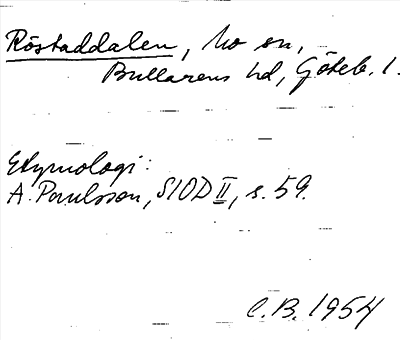 Röstaddalen, Mo sn,
Bullarens hd, Göteb. l.
Etymologi:
A. Paulsson, SIOD II, s. 59.
C.B. 1954